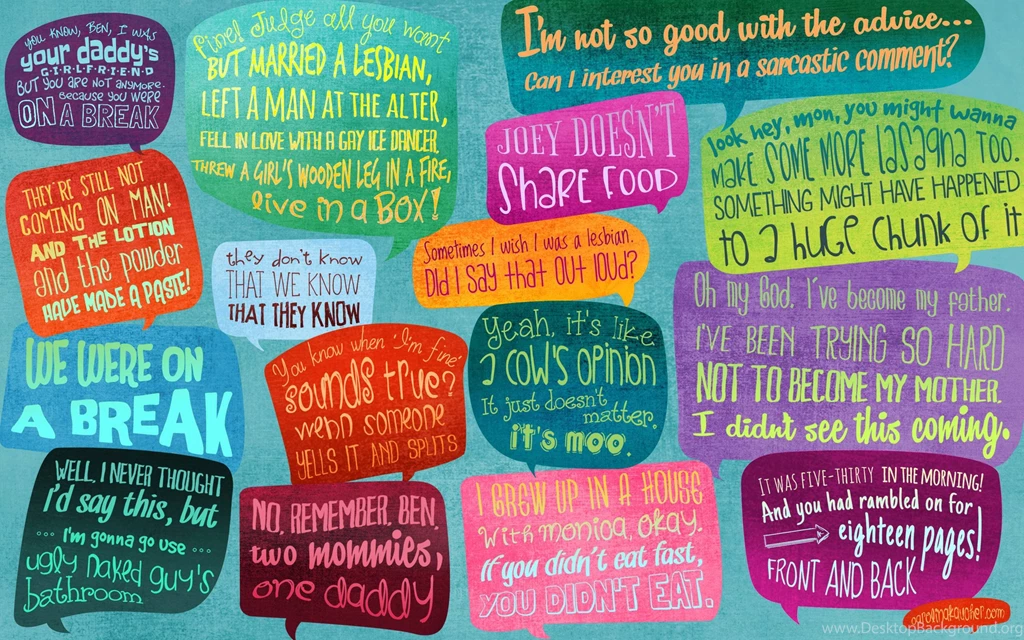 YOU KNOW, BEN, I WAS
your daddy's
GIRLFRIEND
BUT YOU ARE NOT ANYMORE.
BECAUSE YOU WERE
ON A BREAK
fine! Judge all you want
BUT MARRIED A LESBIAN,
LEFT A MAN AT THE ALTER,
FELL IN LOVE WITH A GAY ICE DANCER,
THREW A GIRL'S WOODEN LEG IN A FIRE,
live in a BOX!
I'm not so good with the advice...
Can I interest you in a sarcastic comment?
JOEY DOESN'T
SHARE FOOD
look hey, mon, you might wanna
MAKE SOME MORE lasagna TOO.
SOMETHING MIGHT HAVE HAPPENED
to a huge chunk of it
THEY'RE STILL NOT
COMING ON MAN!
AND THE LOTION
and the powder
HAVE MADE A PASTE!
they don't know
THAT WE KNOW
THAT THEY KNOW
Sometimes I wish I was a lesbian.
Did I say that out loud?
Oh my God. I've become my father.
I'VE BEEN TRYING SO HARD
NOT TO BECOME MY MOTHER.
I didnt see this coming.
WE WERE ON
A BREAK
You know when 'I'm fine'
sounds true?
when someone
YELLS IT AND SPLITS
Yeah, it's like
a cow's opinion
It just doesn't
matter.
it's moo.
WELL, I NEVER THOUGHT
i'd say this, but
... I'm gonna go use ...
ugly naked guy's
bathroom
NO, REMEMBER, BEN,
two mommies,
one daddy
I GREW UP IN A HOUSE
with monica, okay.
If you didn't eat fast,
YOU DIDN'T EAT.
IT WAS FIVE-THIRTY IN THE MORNING!
And you had rambled on for
eighteen pages!
FRONT AND BACK
www.DesktopBackground.org